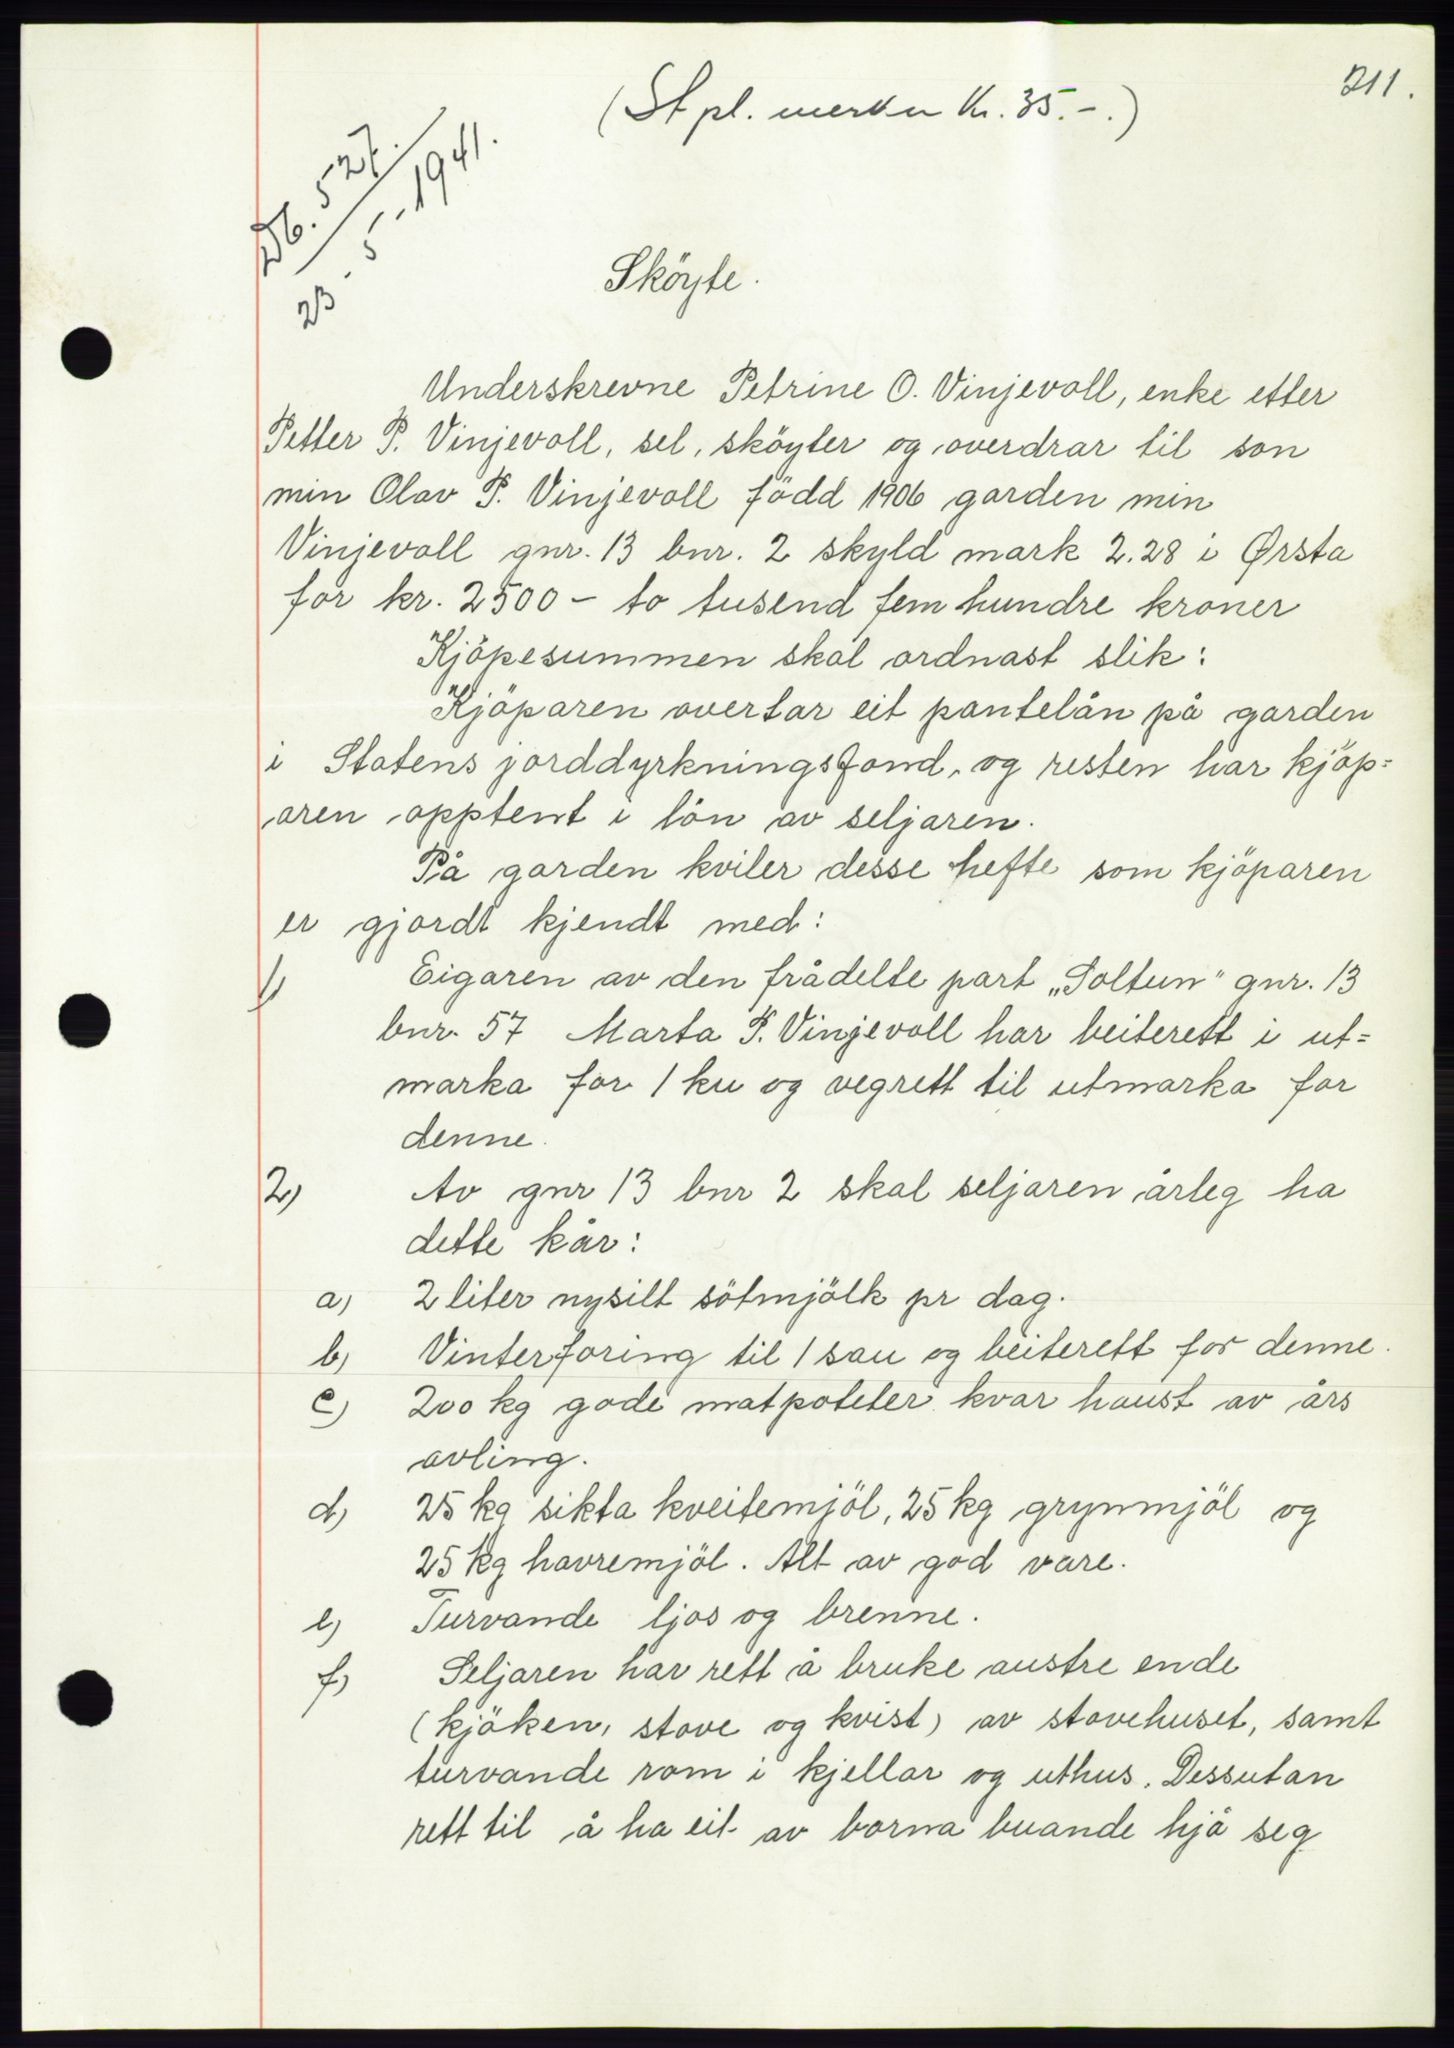 211.
(St pl. merker Kr. 35.-.)
Db. 527.
23 - 5 - 1941.
Sköyte.
Underskrevne Petrine O. Vinjevoll, enke etter
Petter P. Vinjevoll, sel, sköyter og overdrar til son
min Olav P. Vinjevoll född 1906 garden min
Vinjevoll gnr. 13 bnr. 2 skyld mark 2.28 i Ørsta
for kr. 2500 - to tusend fem hundre kroner
Kjöpesummen skal ordnast slik:
Kjöparen overtar eit pantelån på garden
i Statens jorddyrkningsfond, og resten har kjöp=
aren opptent i lön av seljaren.
På garden kviler desse hefte som kjöparen
er gjordt kjendt med:
1) Eigaren av den frådelte part „Soltun" gnr. 13
bnr. 57 Marta P. Vinjevoll har beiterett i ut=
marka for 1 ku og vegrett til utmarka for
denne.
2) Av gnr 13 bnr 2 skal seljaren årleg ha
dette kår:
a) 2 liter nysilt sötmjölk pr dag.
b) Vinterforing til 1 sau og beiterett for denne.
c) 200 kg gode matpoteter kvar haust av års
avling.
d) 25 kg sikta kveitemjöl, 25 kg grynmjöl og
25 kg havremjöl. Alt av god vare.
e) Turvande ljos og brenne.
f) Seljaren har rett å bruke austre ende
(kjöken, stove og kvist) av stovehuset, samt
turvande rom i kjellar og uthus. Dessutan
rett til å ha eit av borna buande hjå seg